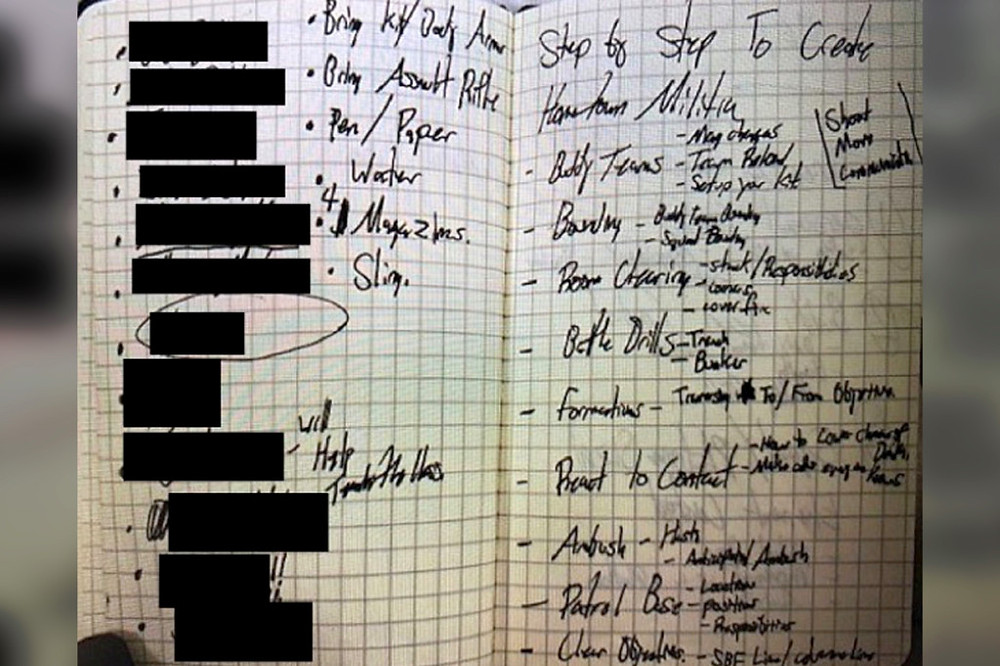 • Bring kit/Body Armor
• Bring Assault Rifle
• Pen/Paper
• Water
• 4 Magazines.
• Sling.
will
- Help
Step by Step To Create
Hometown Militia
Shoot
Move
Communicate
- Buddy Teams - Mag changes
- Team Reload
- Setup your kit
- Bounding - Buddy Team Bounding
- Squad Bounding
- Room Clearing - stack/Responsibilities
- corners
- cover fire
- Battle Drills - Trench
- Bunker
- Formations - Traversing To/From Objective
- React to Contact - How to lower chance of
- Make sure
- Ambush - Hasty
- Anticipated Ambush
- Patrol Base - Location
- positions
- Responsibilities
- Clear Objectives. - SBF Line/